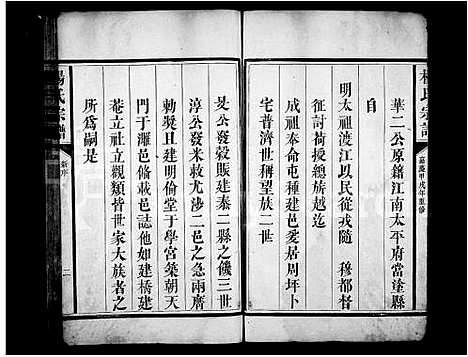 楊氏宗譜
嘉慶甲戌年重修
華二公原籍江南太平府當塗縣
自
明太祖渡江以民從戎隨 穆都督
征討荷授總旗越迄
成祖奉命屯種建邑爰居周坪卜
宅普濟世稱望族二世
旻公發穀賑建泰二縣之饑三世
淳公發米救尤沙二邑之急兩膺
勅獎且建明倫堂于學宮築朝天
門于濉邑俻載邑誌他如建橋建
菴立社立觀類皆世家大族者之
所為嗣是
楊氏宗譜
新序
二